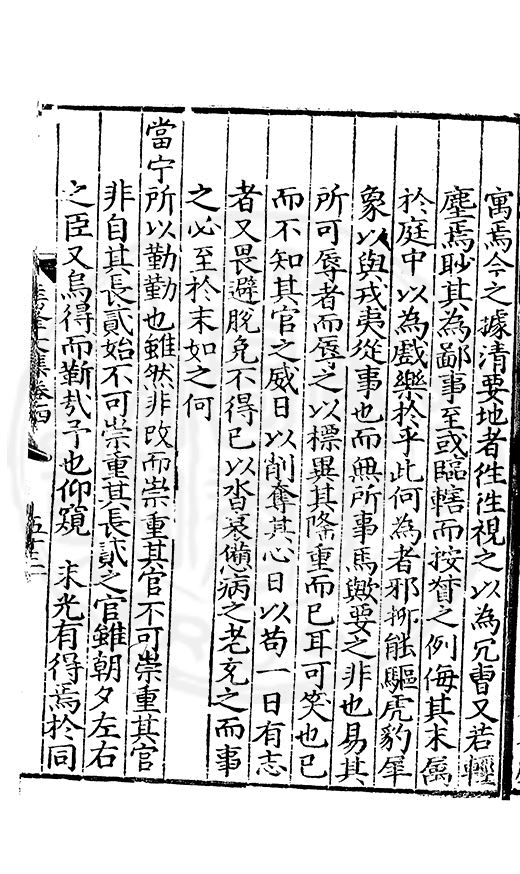 寓焉今之據清要地者徃徃視之以為冗曹又若輕
塵焉耻其為鄙事至或臨轄而按督之例侮其末属
於庭中以為戲樂於乎此何為者邪抑能驅虎豹犀
象以與戎夷從事也而無所事馬歟要之非也易其
所可辱者而辱之以標異其隆重而已耳可笑也已
而不知其官之威日以削奪其心日以苟一日有志
者又畏避脫免不得已以沓衰憊病之老充之而事
之必至於末如之何
當宁所以勤勤也雖然非改而崇重其官不可崇重其官
非自其長貳始不可崇重其長貳之官雖朝夕左右
之臣又烏得而靳㢤予也仰窺 末光有得焉於同